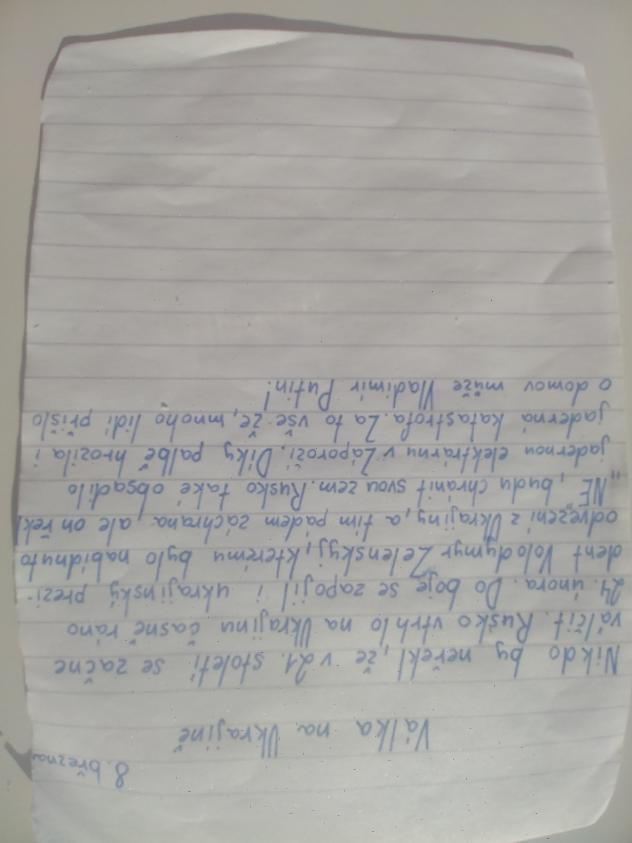 8. března
Válka na Ukrajině
Nikdo by neřekl, že v 21. století se začne
válčit. Rusko vtrhlo na Ukrajinu časně ráno
24. února. Do boje se zapojil i ukrajinský prezi-
dent Volodymyr Zelenskyj, kterému bylo nabídnuto
odvezení z Ukrajiny a, tím pádem záchrana, ale on řekl
"NE", budu chránit svou zem. Rusko také obsadilo
jadernou elektrárnu v Záporoží. Díky palbě hrozila i
jaderná katastrofa. Za to vše, že, mnoho lidí přišlo
o domov může Vladimir Putin!